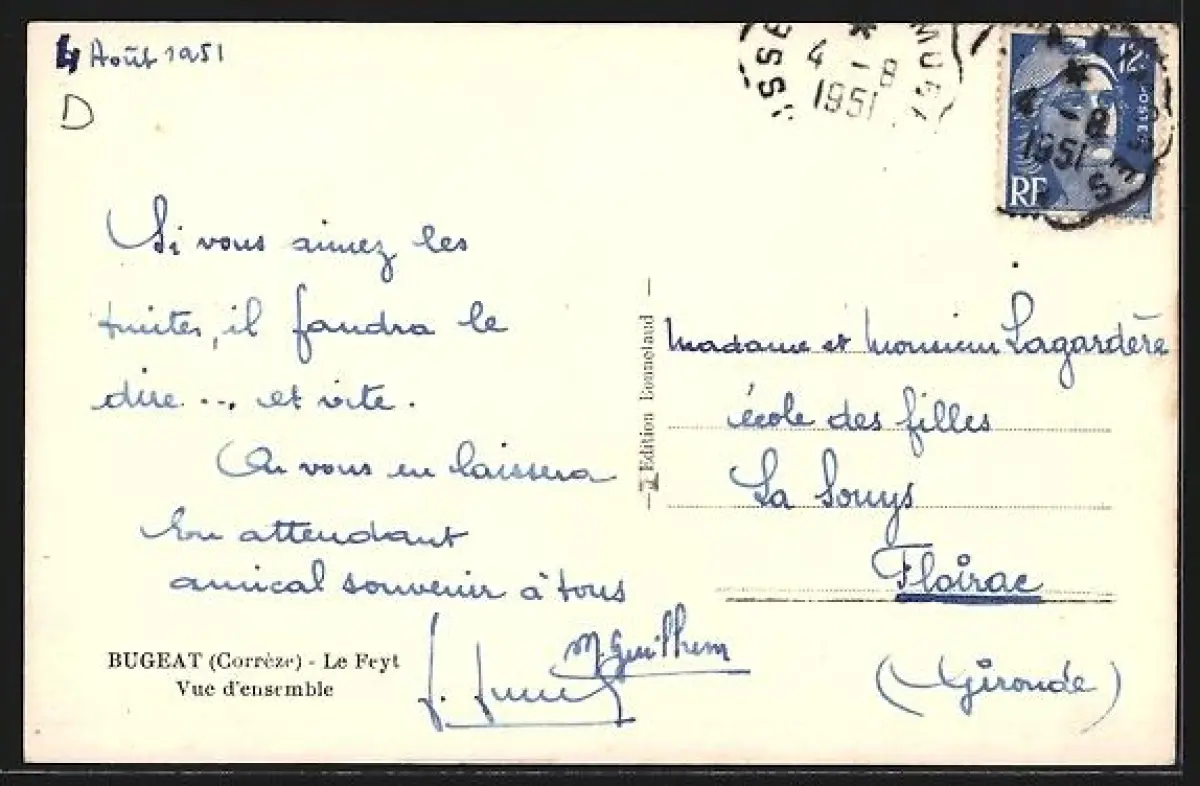 4 Août 1951
D
Si vous aimez les
truites, il faudra le
dire... et vite.
On vous en laissera
En attendant
amical souvenir à tous
M. Guilhem
BUGEAT (Corrèze) - Le Feyt
Vue d'ensemble
Edition Bonnelaud
4 -8
1951
12F
POSTES
RF
4 -8
1951
Madame et Monsieur Lagardère
école des filles
La Souys
Floirac
(Gironde)